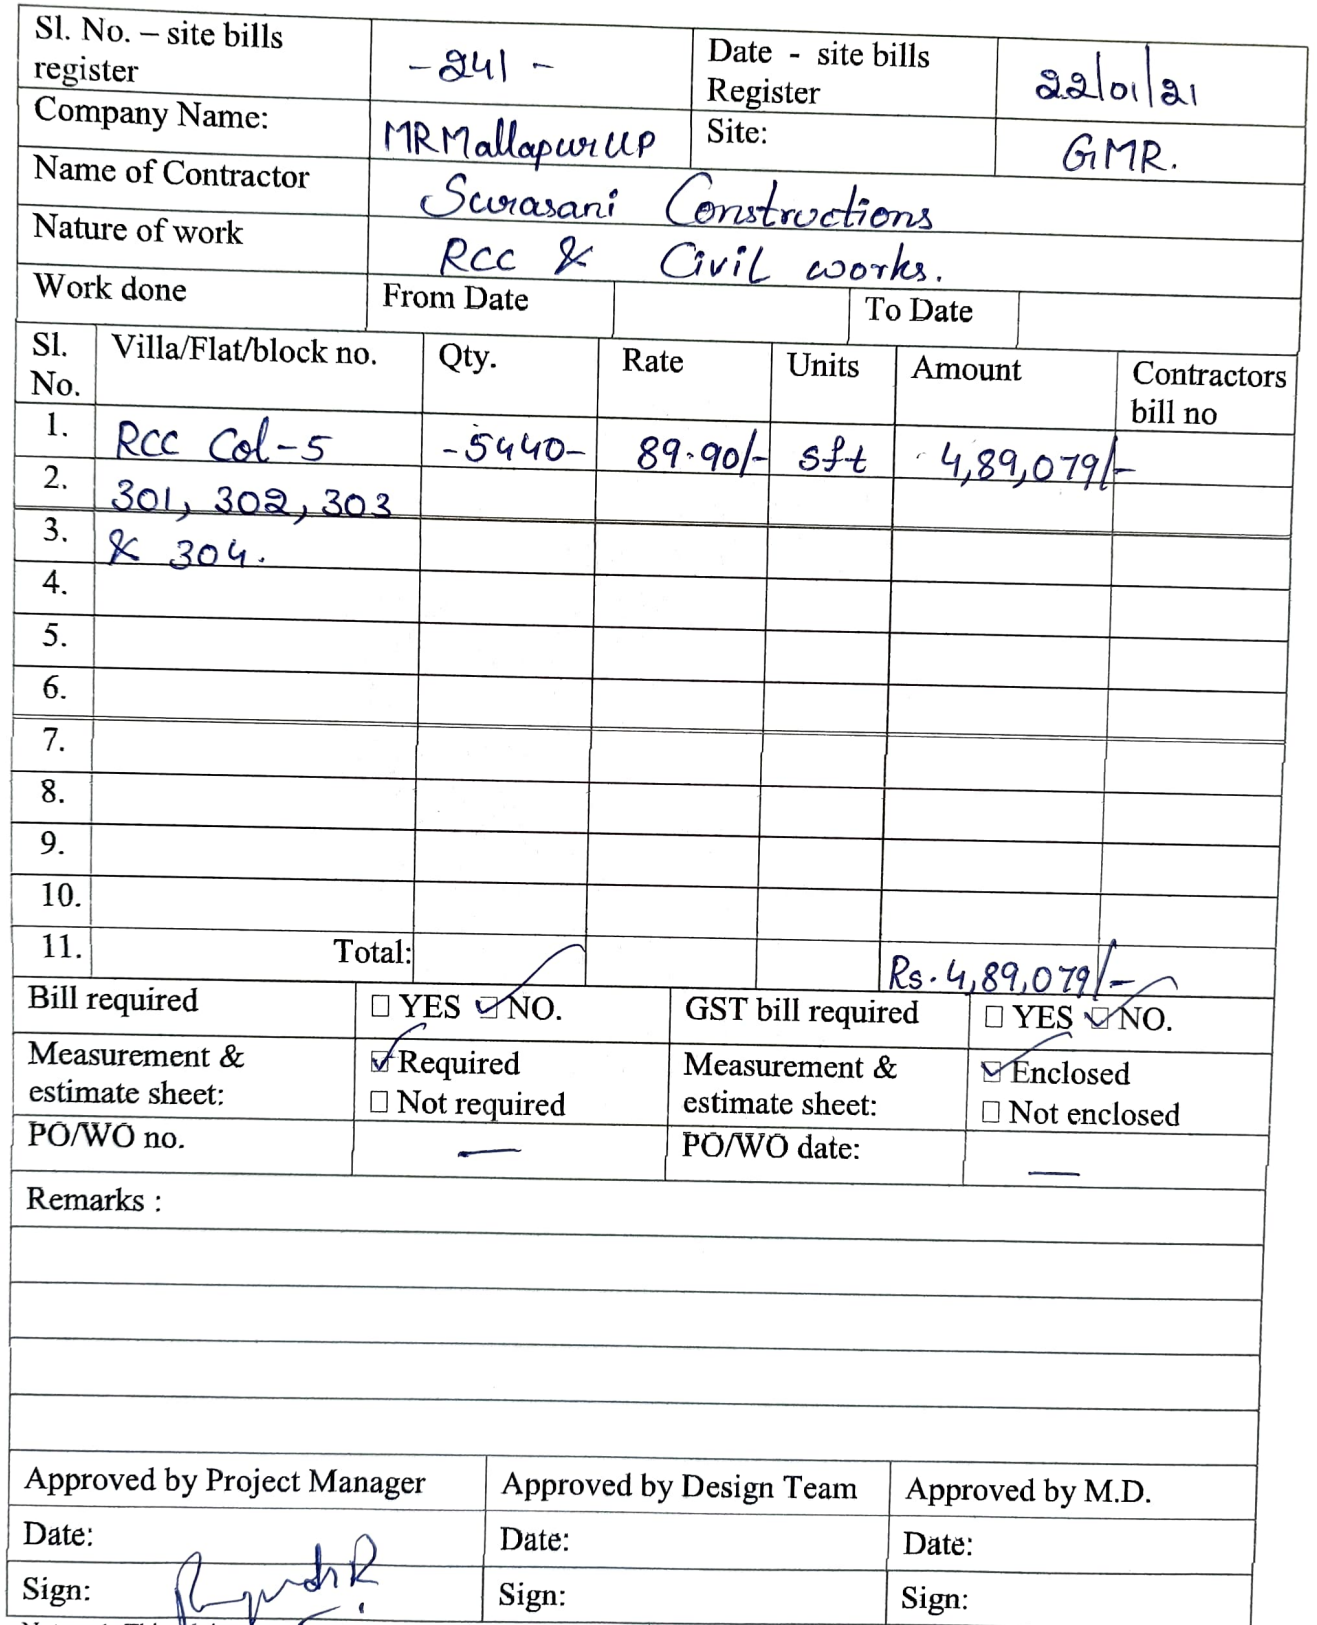 Sl. No. – site bills register -241- Date - site bills Register 22/01/21
Company Name: MRMallapurLLP Site: GMR.
Name of Contractor Surasani Constructions
Nature of work RCC & Civil works.
Work done From Date To Date
Sl. No. Villa/Flat/block no. Qty. Rate Units Amount Contractors bill no
1. RCC Col-5 -5440- 89.90/- sft 4,89,079/-
2. 301, 302, 303
3. & 304.
4.
5.
6.
7.
8.
9.
10.
11. Total: Rs. 4,89,079/-
Bill required ☐ YES ☑ NO. GST bill required ☐ YES ☑ NO.
Measurement & estimate sheet: ☑ Required ☐ Not required Measurement & estimate sheet: ☑ Enclosed ☐ Not enclosed
PO/WO no. — PO/WO date: —
Remarks :
Approved by Project Manager Approved by Design Team Approved by M.D.
Date: Date: Date:
Sign: Sign: Sign: